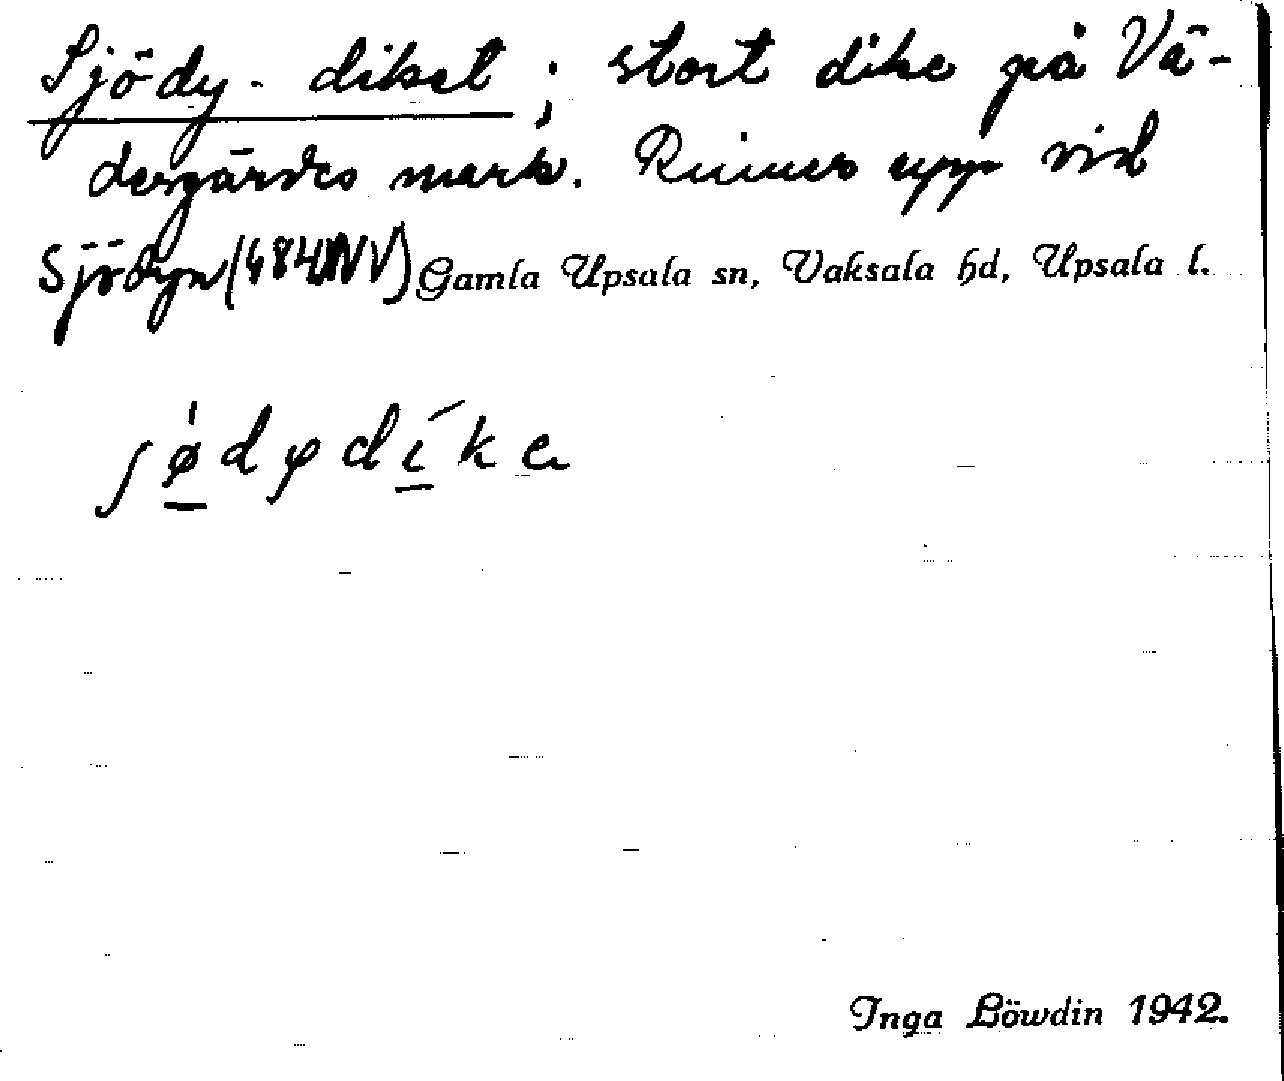 Sjödy-diket; stort dike på Vä-
dergärdes mark. Rinner upp vid
Sjödyn (484 NV) Gamla Upsala sn, Vaksala hd, Upsala l.
ʃø̀dydíkə
Inga Löwdin 1942.